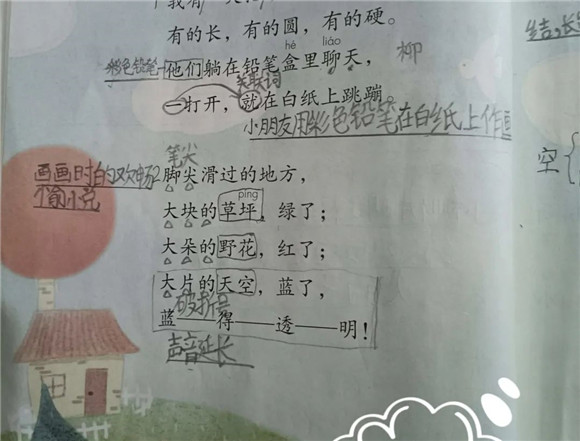 有的长，有的圆，有的硬。
hé liáo
彩色铅笔 他们躺在铅笔盒里聊天， 柳
关联词
一打开，就在白纸上跳蹦。
小朋友用彩色铅笔在白纸上作画
笔尖
画画时的欢畅
脚尖滑过的地方，
愉悦
píng
大块的草坪，绿了；
大朵的野花，红了；
大片的天空，蓝了，
破折号
蓝——得——透——明！
声音延长
空